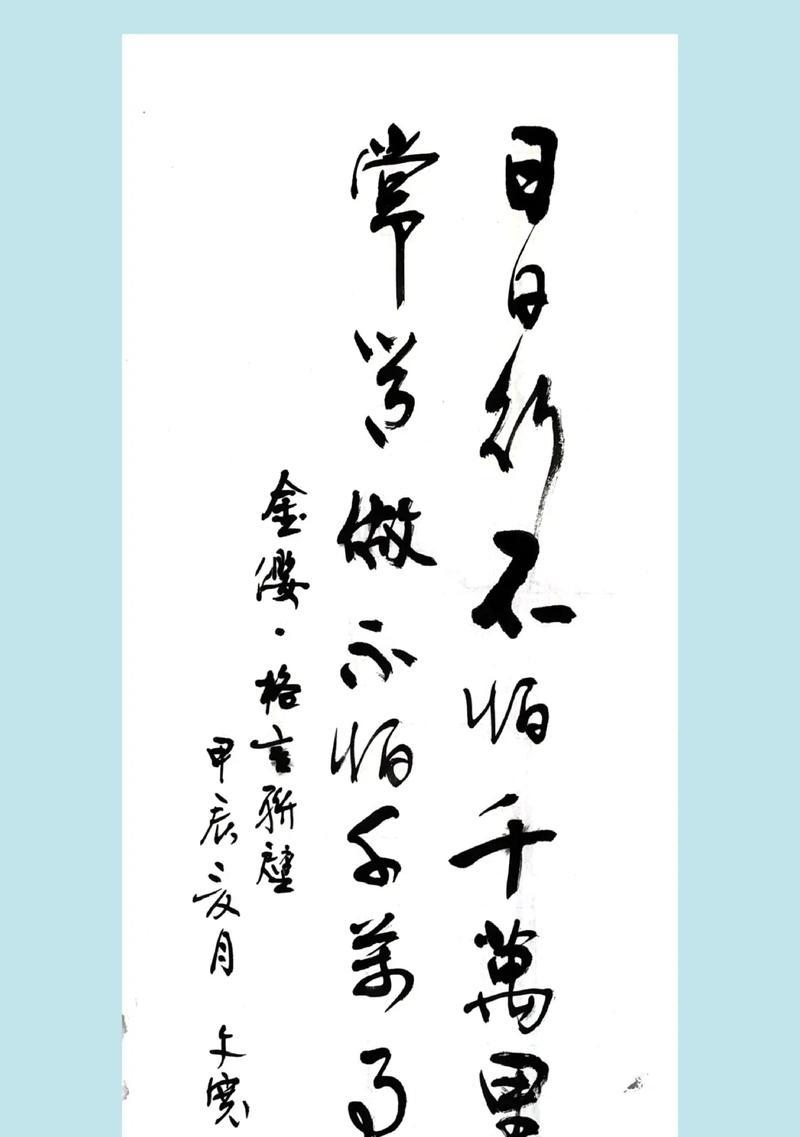 日日行不怕千萬里
常常做不怕千萬事
金纓·格言聯璧
甲辰亥月 文